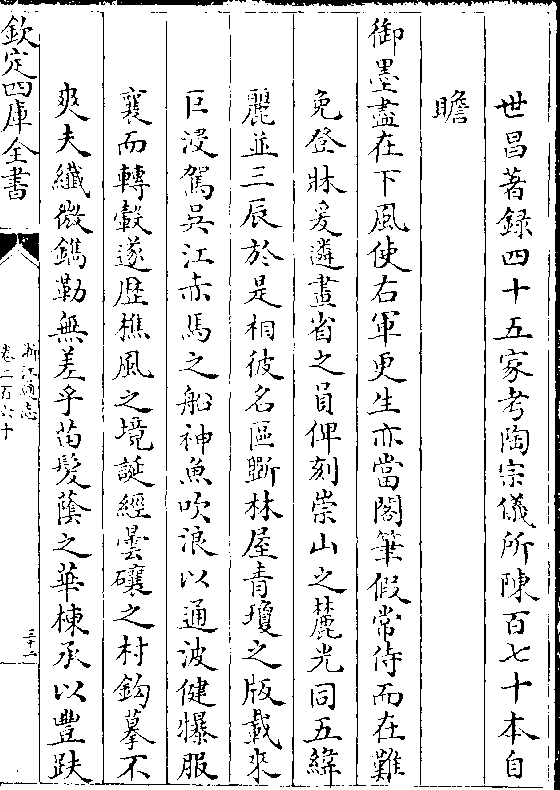 世昌著録四十五家考陶宗儀所陳百七十本自
瞻
御墨盡在下風使右軍更生亦當閣筆假常侍而在難
免登牀爰遴畫省之員俾刻崇山之麓光同五緯
麗並三辰於是相彼名區斲林屋青瓊之版載來
巨浸駕吳江赤馬之船神魚吹浪以通波健犦服
襄而轉轂遂歴樵風之境誕經曇礦之村鈎摹不
爽夫纖微鐫勒無差乎苗髮蔭之華棟承以豐趺
欽定四庫全書
浙江通志
卷二百六十
三十二